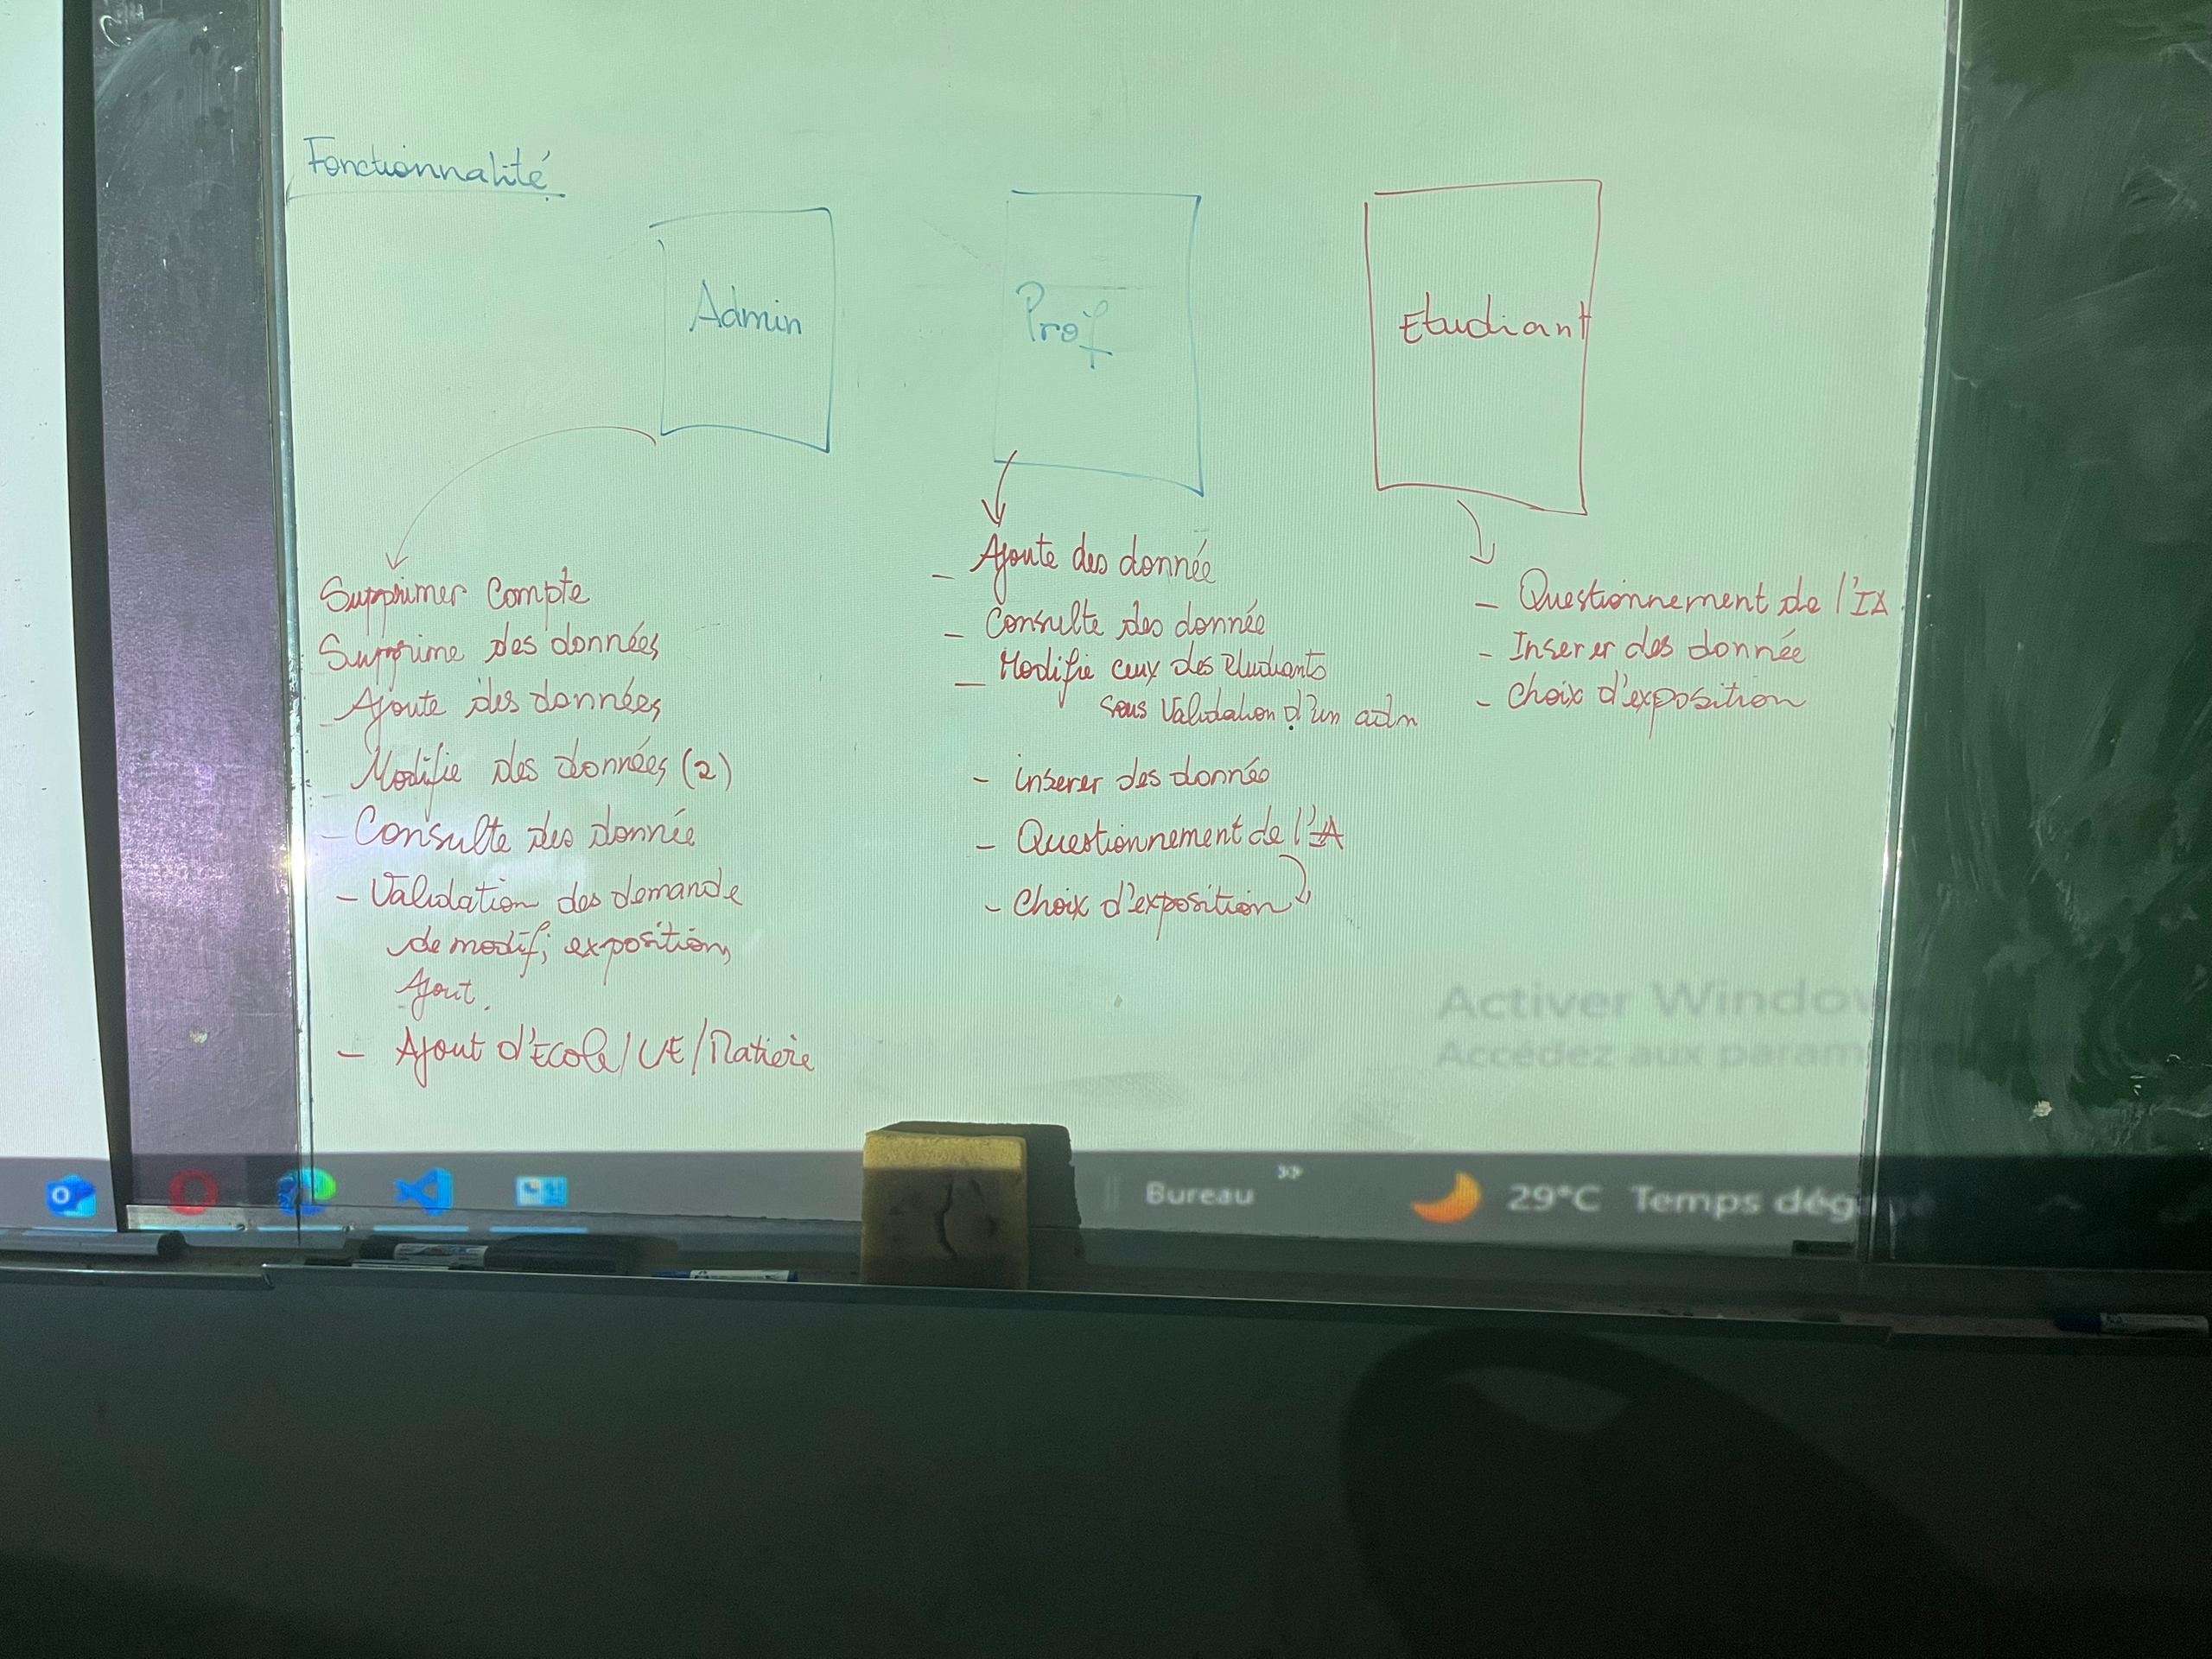 Fonctionnalité
Admin
Prof
Etudiant
Supprimer Compte
Supprime des données
- Ajoute des données
- Modifie des données (2)
- Consulte des donnée
- Validation des demande
de modif, exposition,
Ajout.
- Ajout d'Ecole/UE/Matiere
- Ajoute des donnée
- Consulte des donnée
- Modifie ceux des etudiants
sous Validation d'un adm
- inserer des donnée
- Questionnement de l'IA
- Choix d'exposition
- Questionnement de l'IA
- Inserer des donnée
- Choix d'exposition
Activer Window
Accédez aux param
Bureau
29°C Temps dég